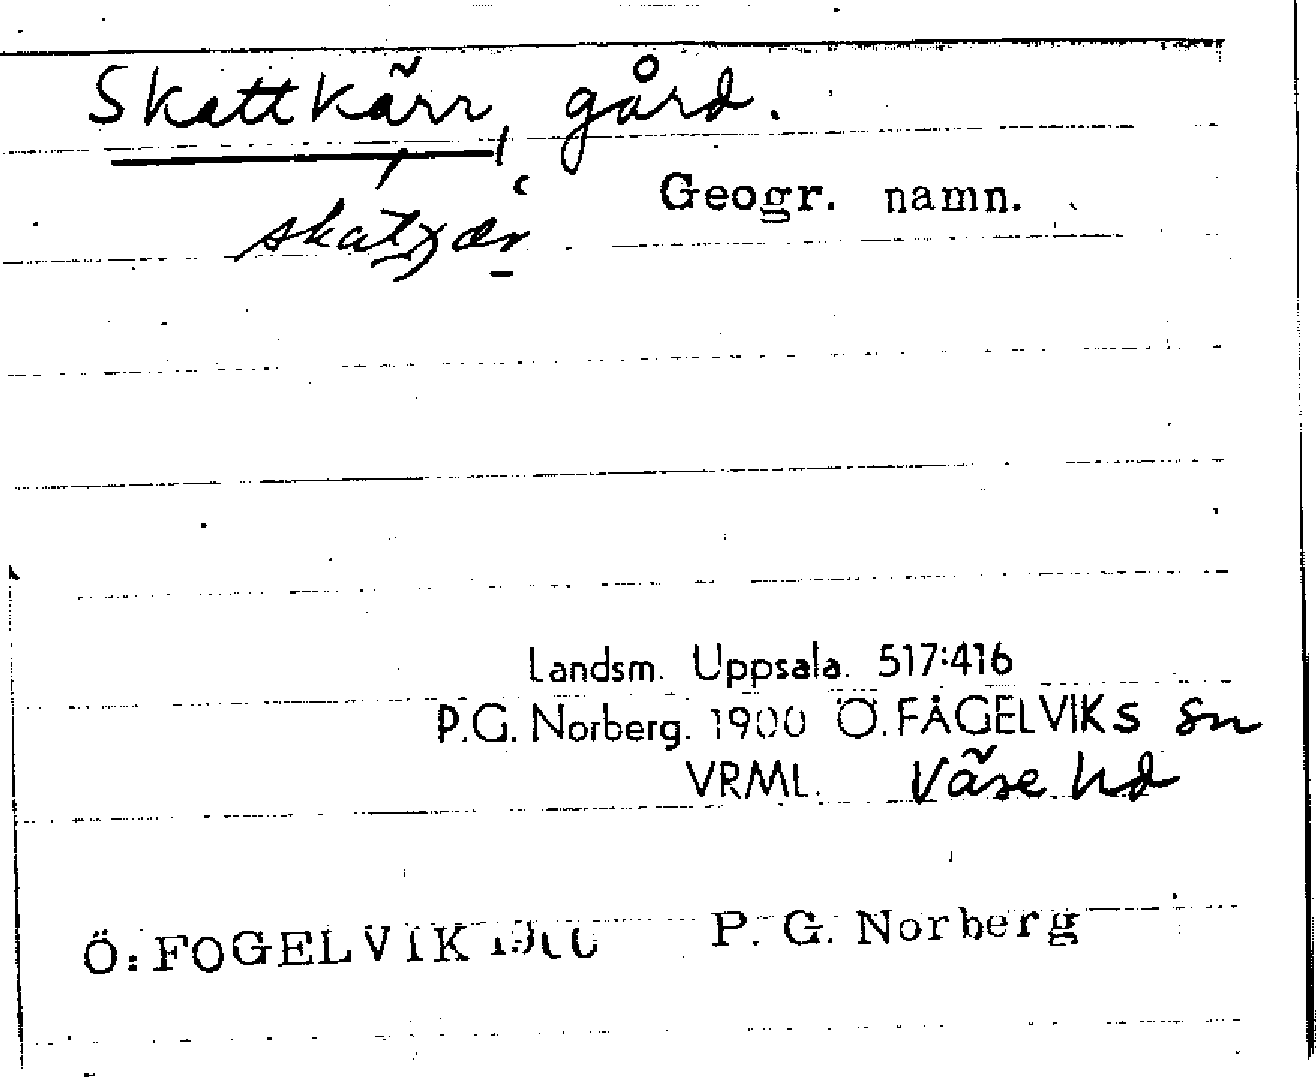 Skattkärr, gård.
Geogr. namn.
Landsm. Uppsala. 517:416
P.G. Norberg. 1900 Ö. FÅGELVIKS sn
VRML. Väse hd
Ö: FOGELVIK 1900 P. G. Norberg